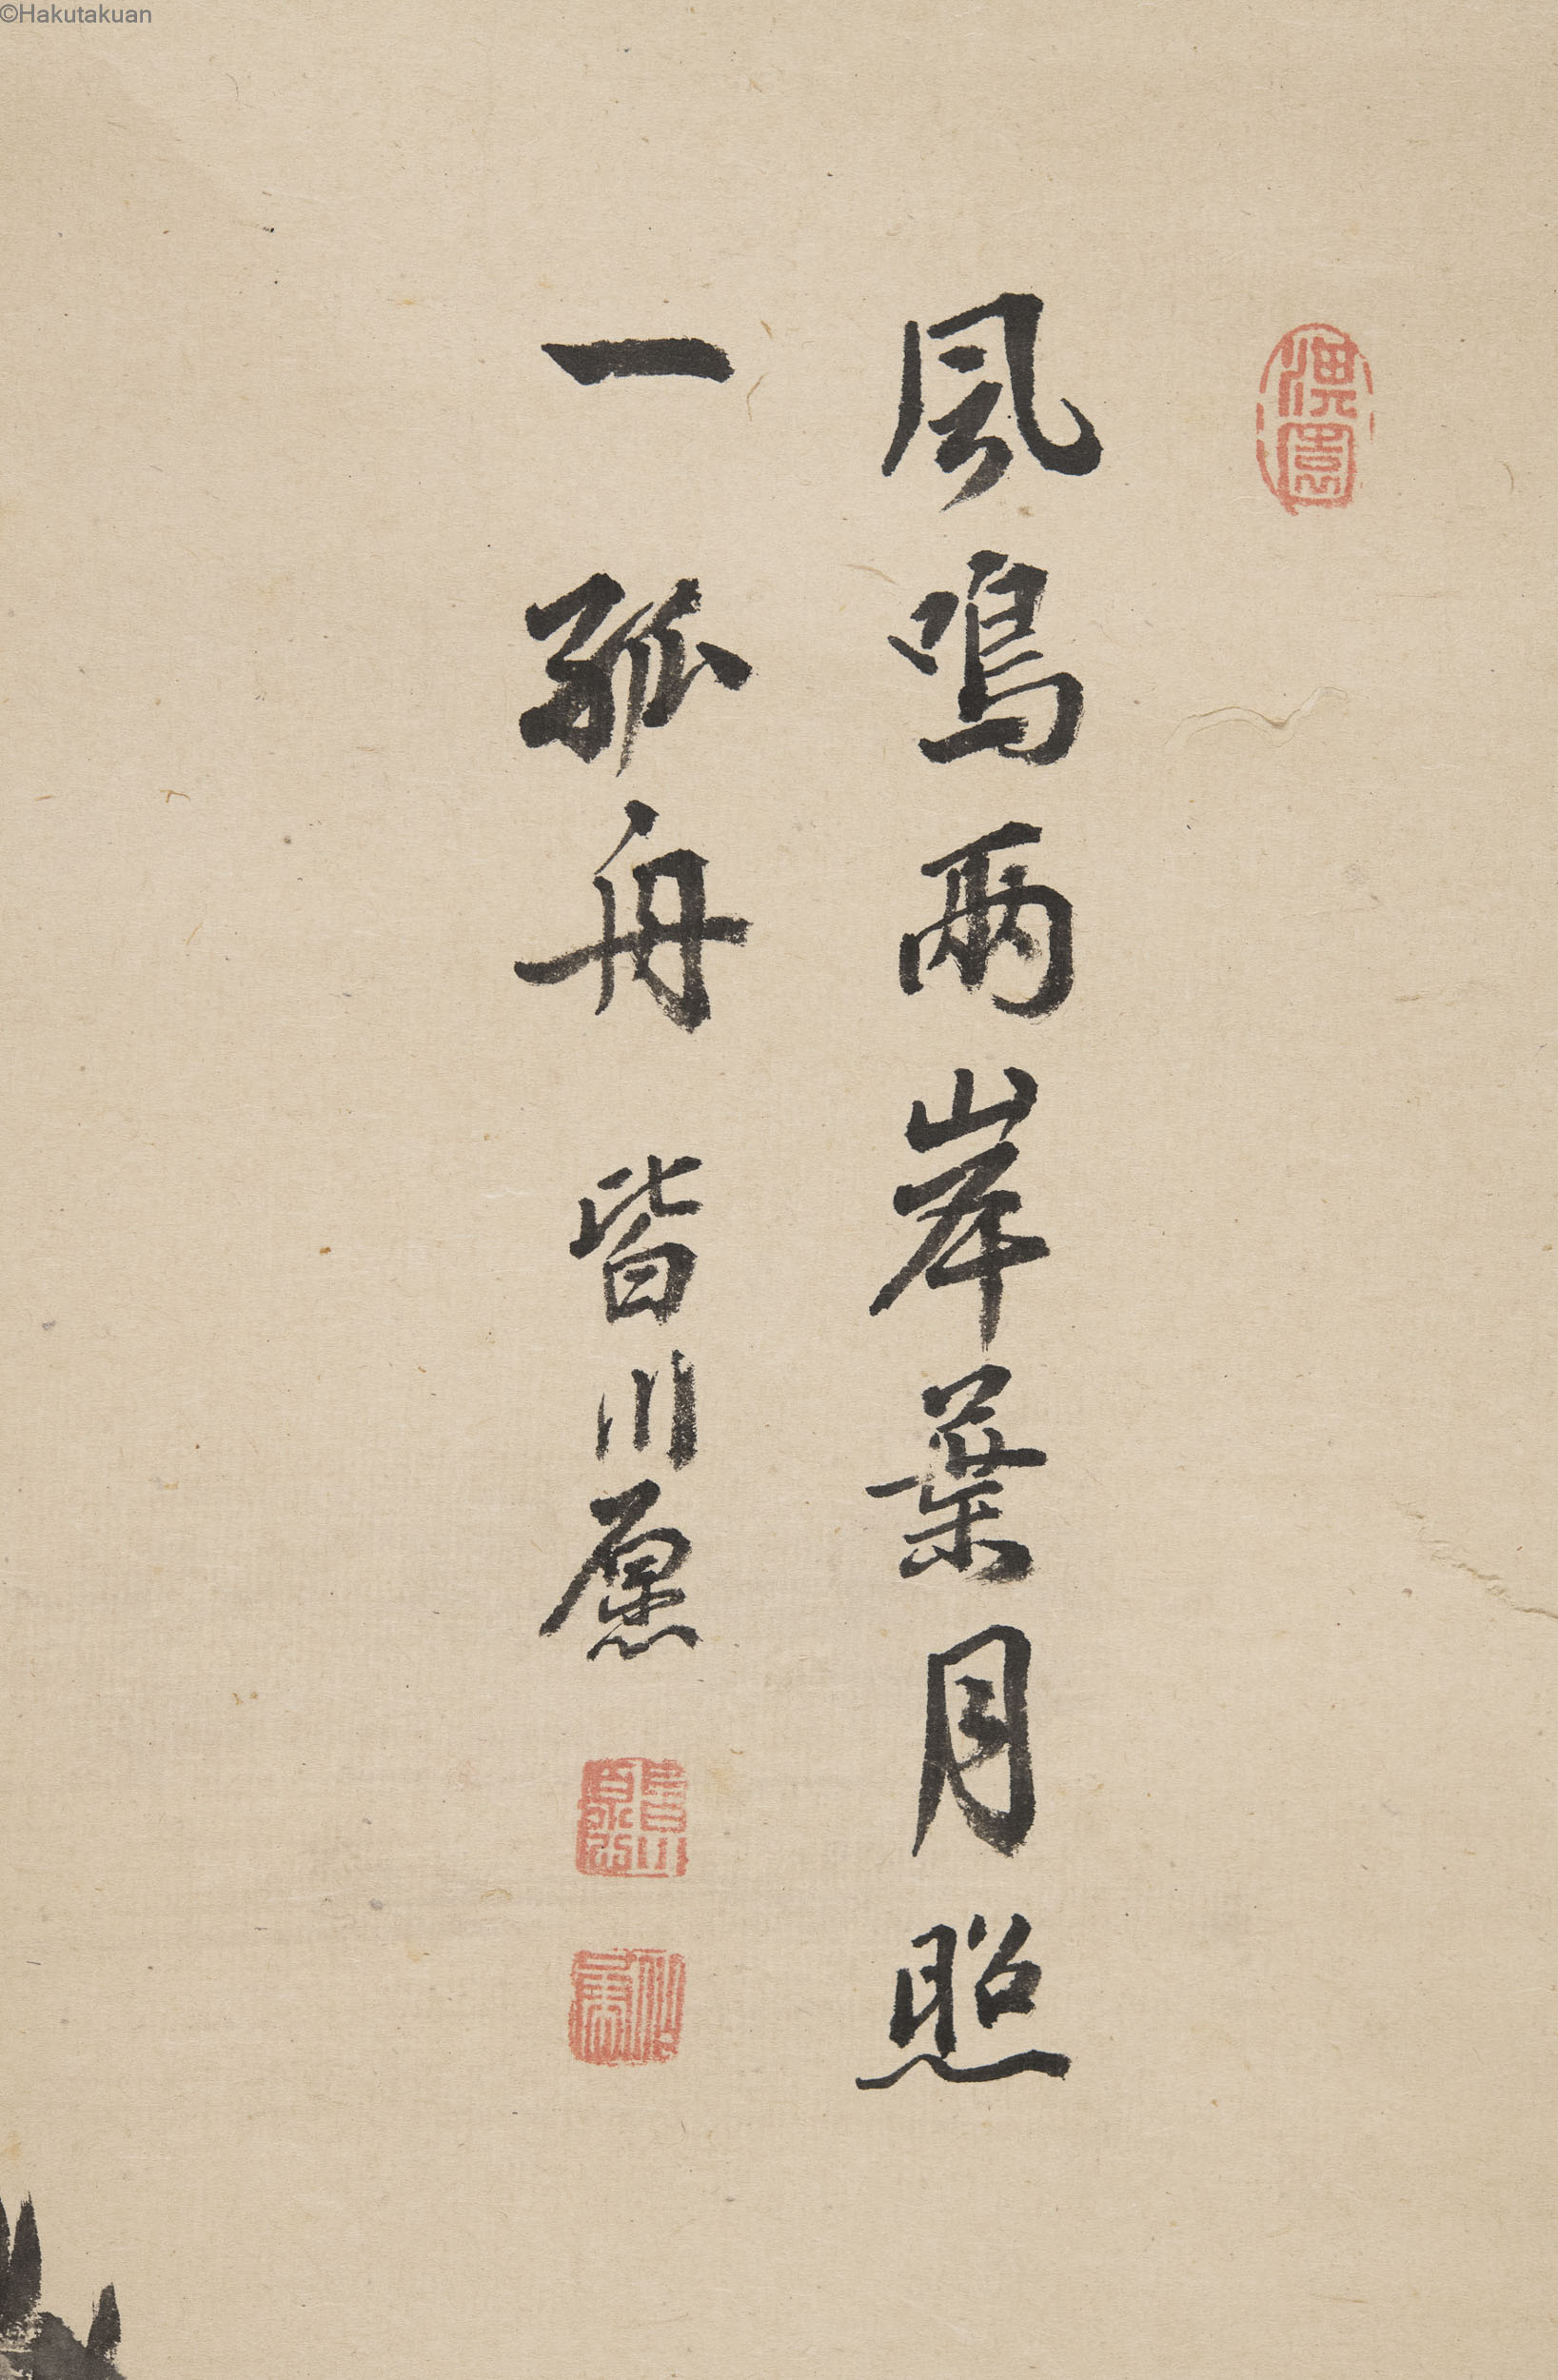 ©Hakutakuan
風鳴兩岸葉月照
一孤舟 皆川愿
淇園